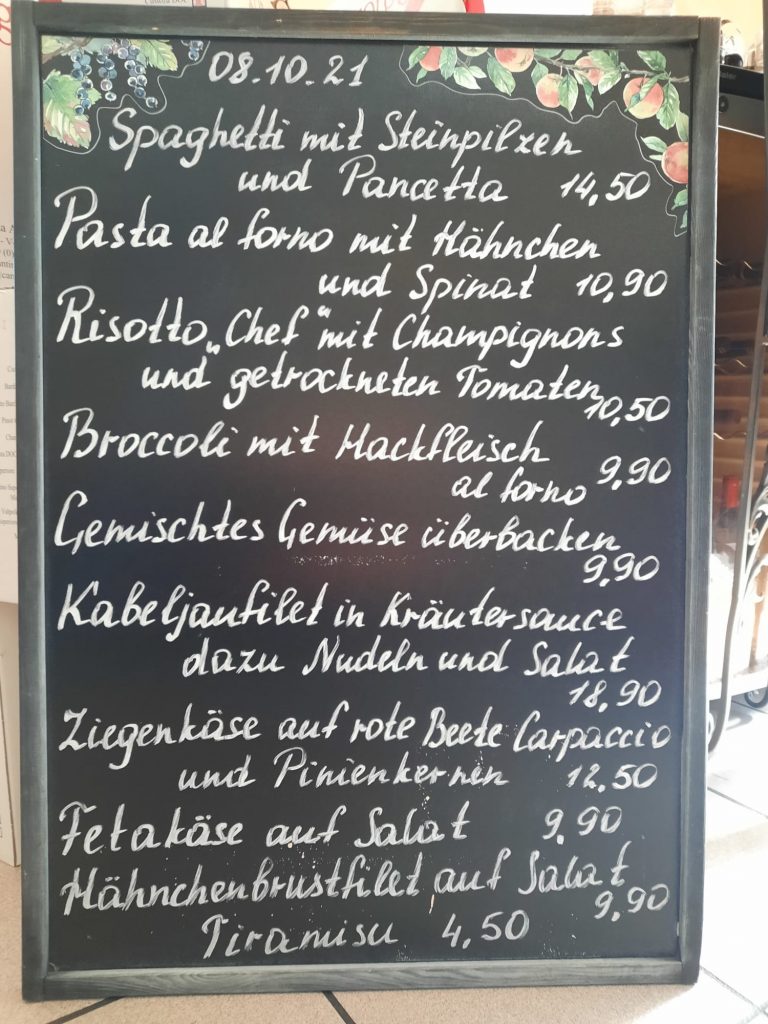 08.10.21
Spaghetti mit Steinpilzen
und Pancetta 14,50
Pasta al forno mit Hähnchen
und Spinat 10,90
Risotto „Chef“ mit Champignons
und getrockneten Tomaten
10,50
Broccoli mit Hackfleisch
al forno 9,90
Gemischtes Gemüse überbacken
9,90
Kabeljaufilet in Kräutersauce
dazu Nudeln und Salat
18,90
Ziegenkäse auf rote Beete Carpaccio
und Pinienkernen 12,50
Fetakäse auf Salat 9,90
Hähnchenbrustfilet auf Salat
9,90
Tiramisu 4,50